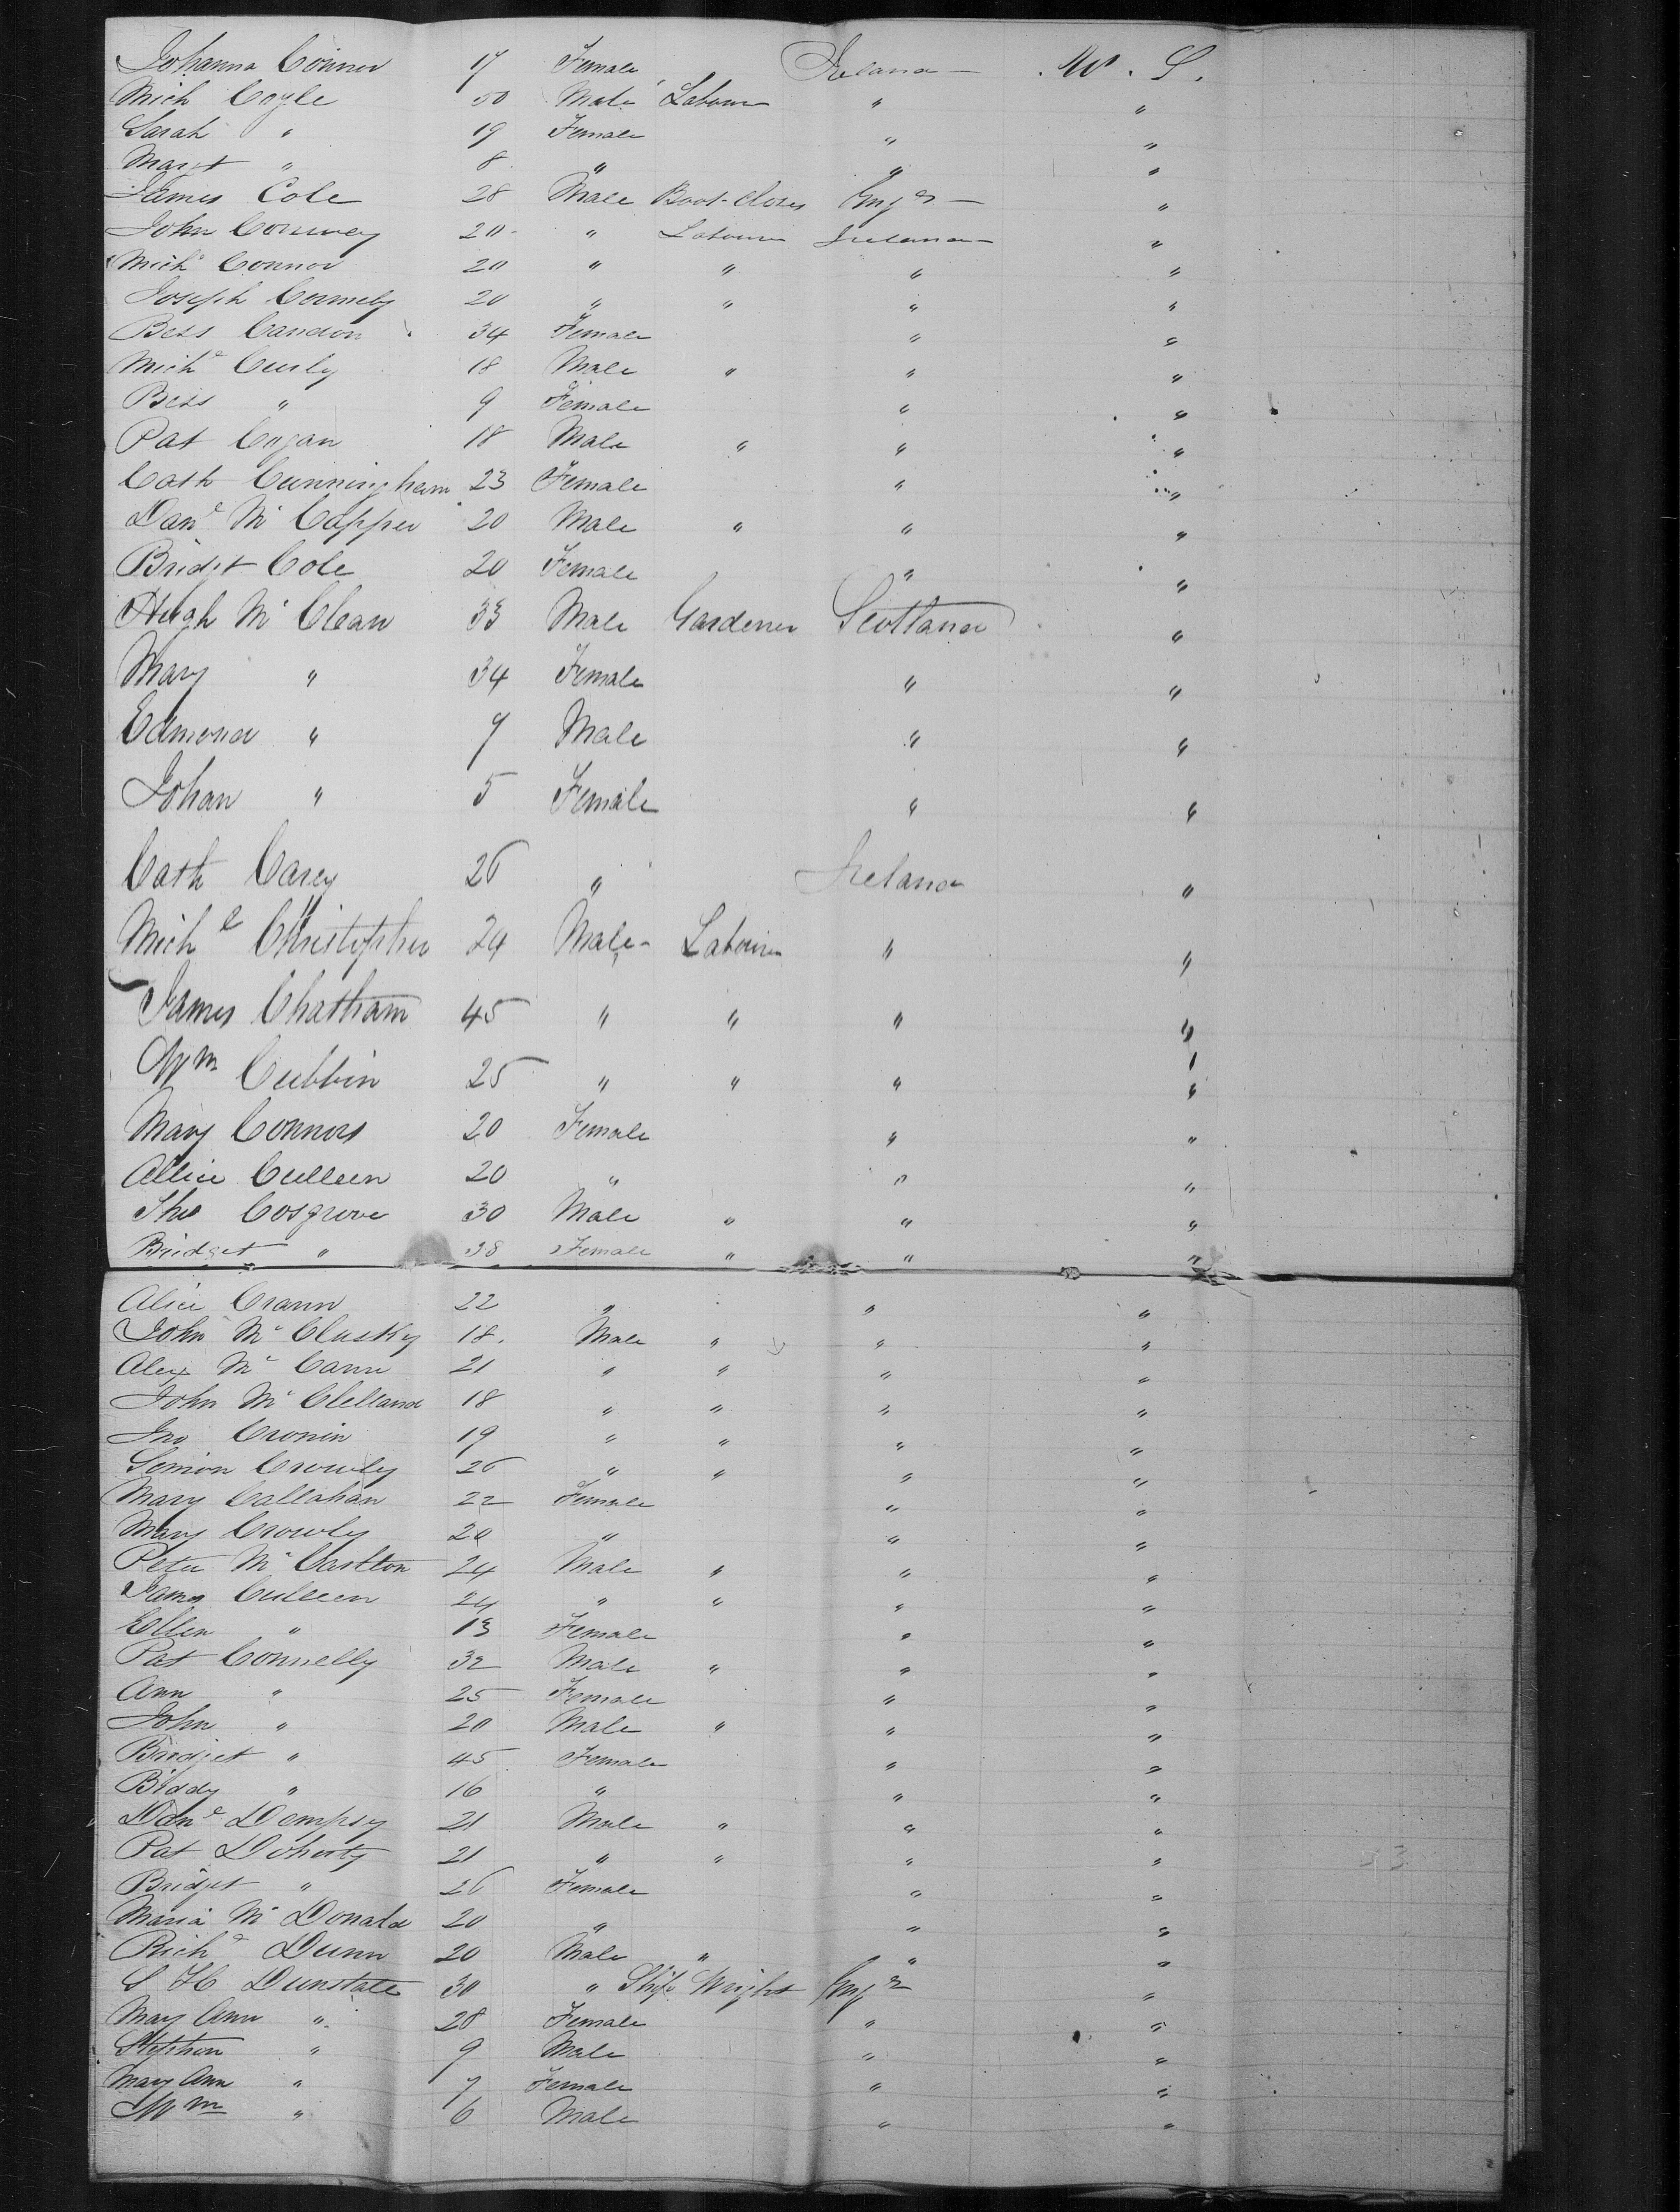 Johanna Connor 17 Female Ireland — U. S.
Mich Coyle 50 Male Labourer " "
Sarah " 19 Female " "
Margt " 8 " " "
James Cole 28 Male Boot-Closer Engd — "
John Conway 20 " Labourer Ireland "
Michl Connor 20 " " " "
Joseph Cormeby 20 " " " "
Bess Candon 34 Female " "
Michl Curly 18 Male " " "
Bess " 9 Female " "
Pat Cogan 18 Male " " "
Cath Cunningham 23 Female " "
Danl Mc Capper 20 Male " " "
Bridgt Cole 20 Female " "
Hugh Mc Clean 33 Male Gardener Scotland "
Mary " 34 Female " "
Edmond " 7 Male " "
Johan " 5 Female " "
Cath Carey 26 " Ireland "
Michl Christopher 24 Male Labourer " "
James Chatham 45 " " " "
Wm Cubbin 25 " " " "
Mary Connors 20 Female " "
Allice Culleen 20 " " "
Tho Cosgrove 30 Male " " "
Bridget " 38 Female " " "
Alice Crann 22 " " "
John Mc Clusky 18 Male " " "
Alex Mc Cann 21 " " " "
John Mc Clelland 18 " " " "
Jno Cronin 19 " " " "
Simon Crowly 26 " " " "
Mary Callahan 22 Female " "
Mary Crowly 20 " " "
Peter Mc Carlton 24 Male " " "
James Culleen 24 " " " "
Ellen " 13 Female " "
Pat Connelly 32 Male " " "
Ann " 25 Female " "
John " 20 Male " " "
Bridget " 45 Female " "
Biddy " 16 " " "
Danl Dempsy 21 Male " " "
Pat Doherty 21 " " " "
Bridget " 26 Female " "
Maria Mc Donald 20 " " "
Richd Dunn 20 Male " " "
S H Dunstate 30 " Ship Wright Engd "
Mary Ann " 28 Female " "
Stephen " 9 Male " "
Mary Ann " 7 Female " "
Wm " 6 Male " "